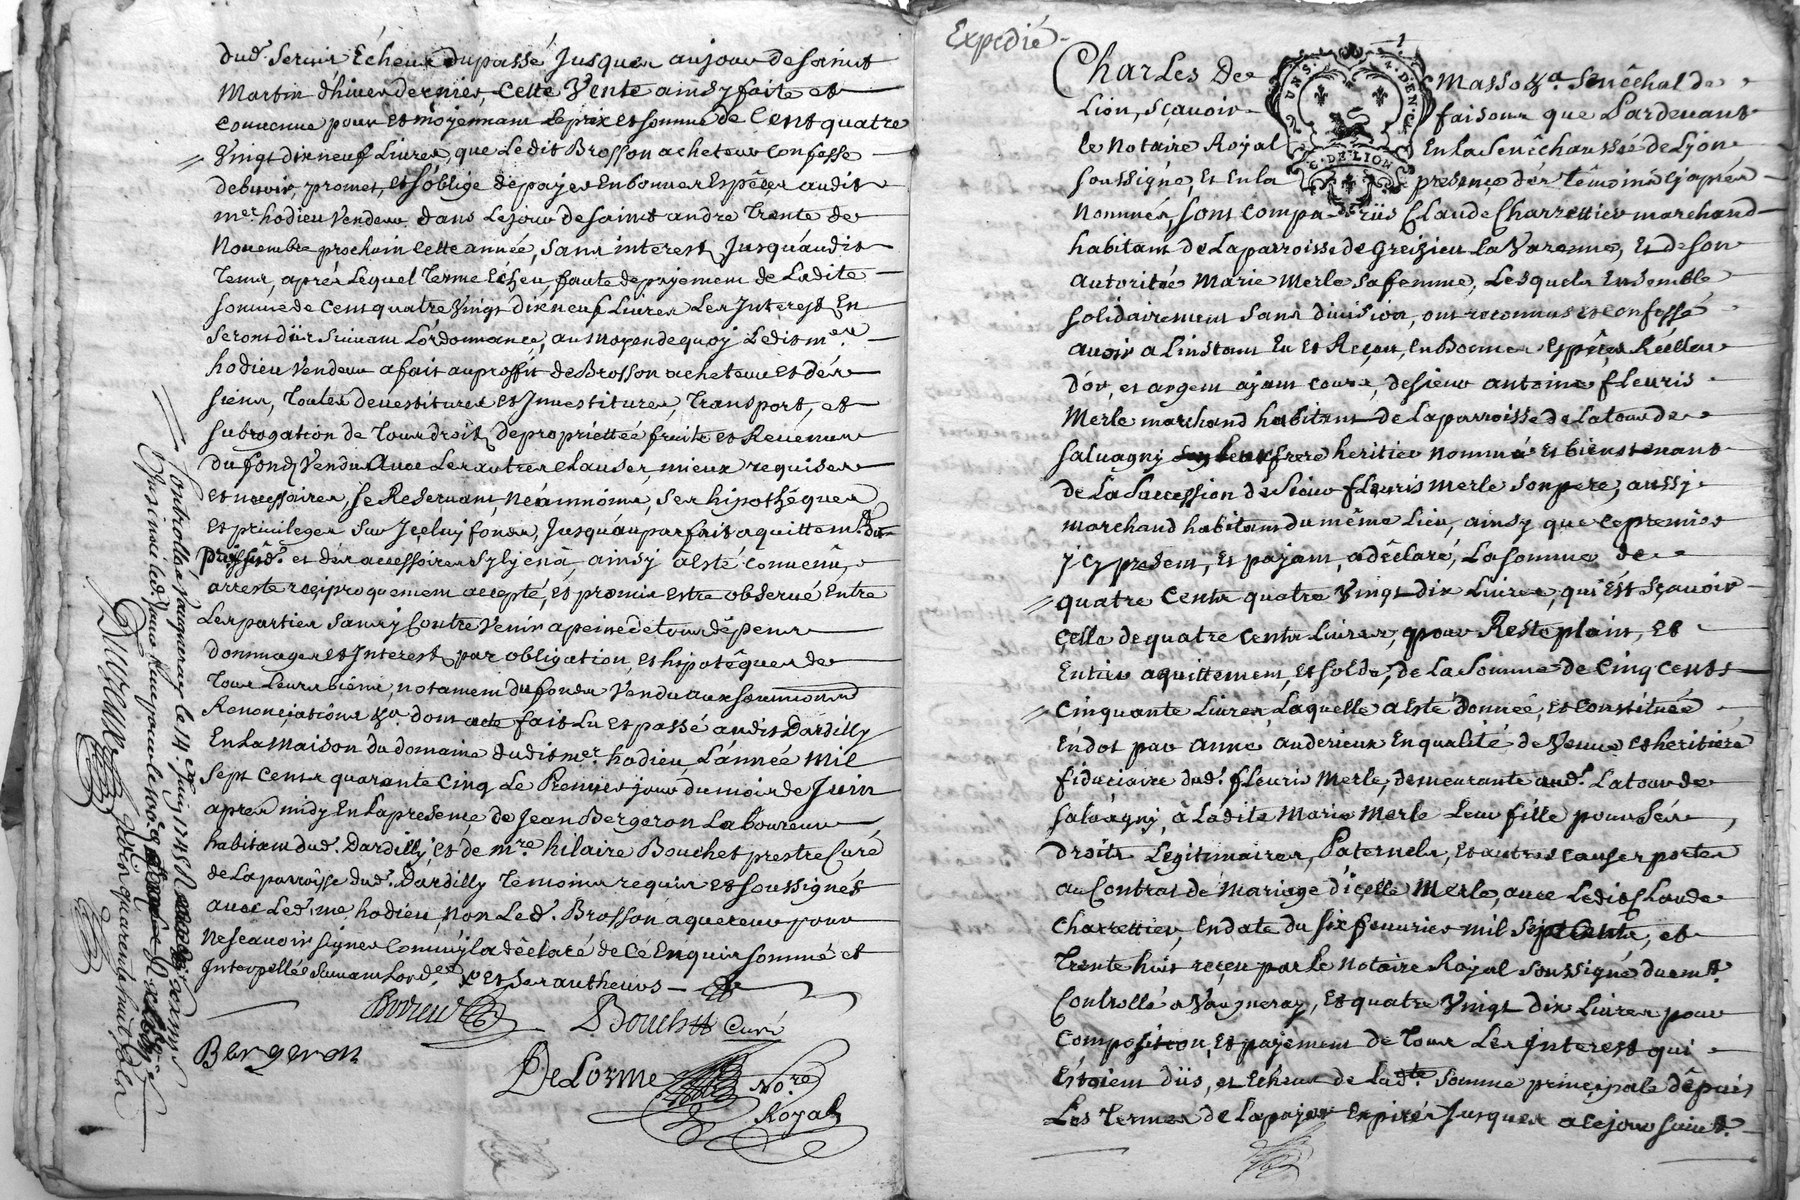 dud. servis Echeus du passé Jusques aujour de sainct
Martin d'hiver dernier, Cette Vente ainsy faite et
convenue pour et moyennant le prix et somme de Cent quatre
Vingt dix neuf Livres, que Ledit Brosson acheteur Confesse
debvoir, promet, et s'oblige de payer En bonnes Espêces audit
me. hodieu Vendeur dans Le jour de sainct andre Trente de
Novembre prochain cette année, sans interest Jusqu'audit
Tems, aprés Lequel Terme Echeu, faute de payement de Ladite
somme de Cent quatre Vingt dix neuf Livres Les Interest En
seront düs suivant L'ordonnance, au moyen de quoy Ledit me.
hodieu Vendeur a fait au proffit de Brosson acheteur et des
siens, Toutes devestitures et Investitures, Transport, et
subrogation de Tous droits de proprietteé fruits et Revenus
du fond Vendu Avec Les autres clauses, mieux requises
et necessaires, se Reservant, Néanmoins, ses hipothéques
et privileges sur Jceluy fonds, Jusqu'au parfait aquittemt. du
prix sud. et des accessoires sy lyena, ainsy a Esté convenû,
arresté reçiproquement accepté, et promis Estre observé Entre
Les parties sans y Contrevenir a peine de tous dépens
dommages et Interest par obligation et hipotêques de
Tous Leurs biens, notament du fonds Vendu aux soumissions
Renonciations &a. dont acte fait Lu et passé audit Dardilly
En La maison du domaine dudit me. hodieu L'année mil
sept cents quarante cinq Le Premier jour du mois de Juin
apres midy En La presence de Jean Bergeron Laboureur
habitant dud. Dardilly, et de mre. hilaire Bouchet prestre Curé
de La parroisse dud. Dardilly Temoins requis et soussignés
avec Led. me. hodieu, non Led. Brosson aquereur pour
ne sçavoir signer Comm'il a dêclaré de Cé Enquis sommé et
Interpellé suivant L'ordce.
hodieu
Bouchett Curé
Bergeron
DeLorme Nore.
Royal
Controllé a Vaugneray le 14e. Juin 1745
Delorme
Expedié
Charles De Masso &a. Senêchal de
Lion, sçavoir faisons que Pardevant
le Notaire Royal En La Senêchaussée de Lyon
soussigné, Et En La presence des têmoins cy aprés
Nommés, sont comparüs Claude Charrettier marchand
habitant de La parroisse de Greizieu La Varenne, Et de son
autoritée Marie Merle sa femme, Lesquels Ensemble
solidairement sans division, ont reconnus et confessé
avoir a L'instant Eu et Reçeu, En Bonnes Espêces Réelles
d'or, et argent ayant cours, de sieur antoine fleuris
Merle marchand habitant de La parroisse de La tour de
salvagny frere heritier nommé et bienstenant
de La Succession de Sieur fleuris Merle son pere, aussy
marchand habitant du même Lieu, ainsy que ce premier
y cy present, Et payant, a dêclaré, La somme de
quatre Cents quatre Vingt dix Livres, qui Est sçavoir
Çelle de quatre cents Livres, pour Reste plain, Et
Entier aquittement, et solde, de La Somme de Cinq Cents
Cinquante Livres, Laquelle a Esté donnée, et Constituée
En dot par anne auderieux En qualité de Veuve et heritiere
fiduciaire dud. fleuris Merle, demeurante aud. La tour de
Salvagny, â Ladite Marie Merle Leur fille pour Ses
droits Legitimaires, Paternels, et autres causes portés
au Contrat de Mariage d'içelle Merle, avec Ledit Claude
Charrettier, En date du six fevrier mil sept Cents, et
Trente huit reçeu par Le Notaire Royal soussigné duemt.
Controllé a Vaugneray, Et quatre Vingt dix Livres pour
Composition, Et payement de Tous Les Interest qui
Étoient düs, et Echeus de Lad.te somme principale dépuis
Les Termes de La payer Expirés Jusques a ce jour suivt.
VNS. 4. DEN.
G. DE LION